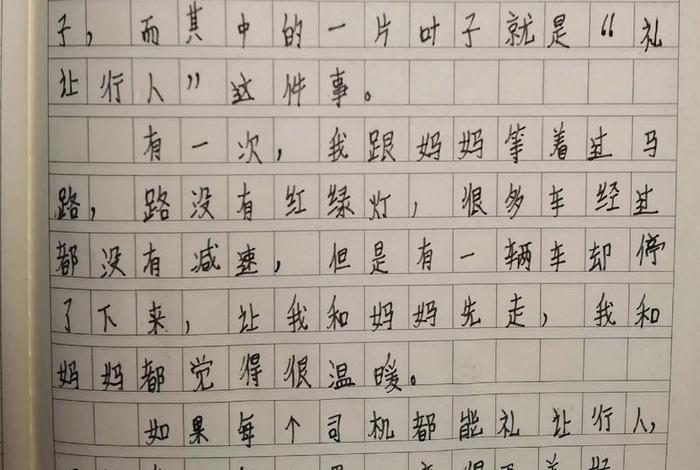 子，而其中的一片叶子就是“礼
让行人”这件事。
有一次，我跟妈妈等着过马
路，路没有红绿灯，很多车经过
都没有减速，但是有一辆车却停
了下来，让我和妈妈先走，我和
妈妈都觉得很温暖。
如果每个司机都能礼让行人，